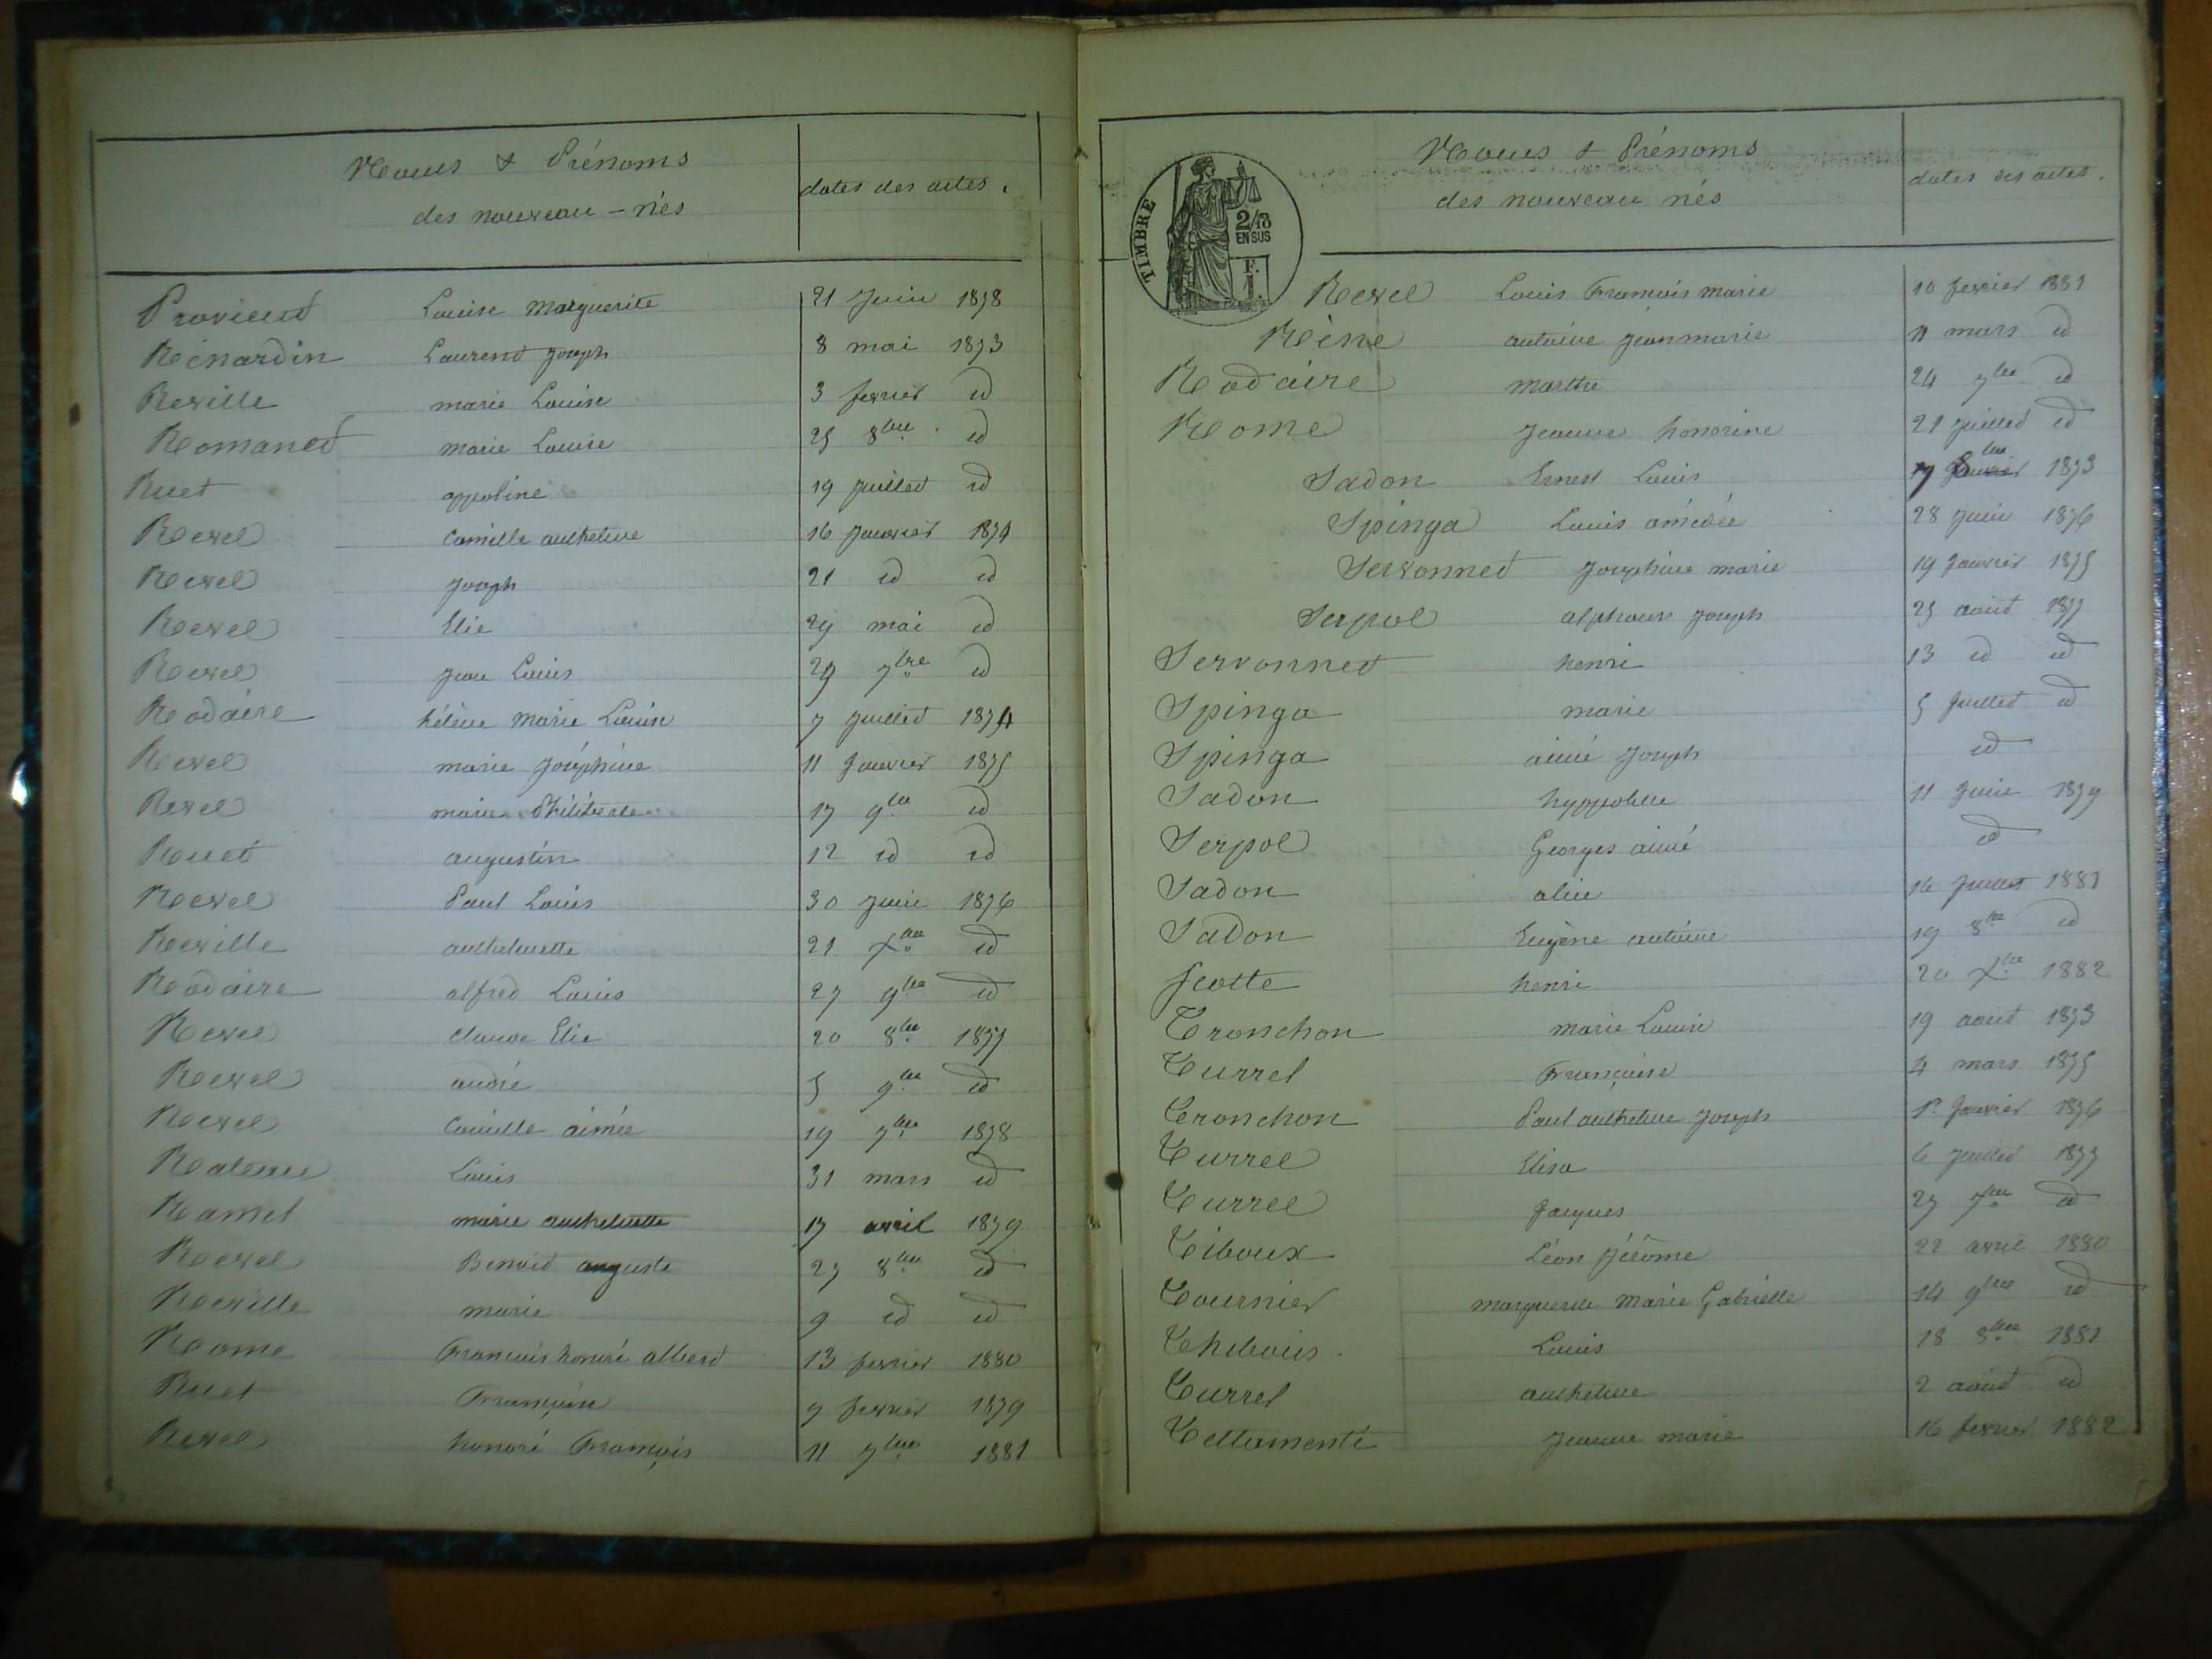 Noms & Prénoms
des nouveau-nés
dates des actes.
Provient Louise Marguerite 21 Juin 1878
Rénardin Laurent Joseph 8 mai 1873
Reville marie Louise 3 fevrier id
Romanet marie Louise 25 8bre id
Ruet appoline 19 Juillet id
Revel Camille anthelme 16 Janvier 1874
Revel Joseph 21 id id
Revel Elie 29 mai id
Revel Jean Louis 29 7bre id
Rodaire hélène Marie Louise 7 Juillet 1874
Revel marie Joséphine 11 Janvier 1875
Revel marie Philiberte 17 9bre id
Ruet augustin 12 id id
Revel Paul Louis 30 Juin 1876
Reville anthelmette 21 Xbre id
Rodaire alfred Louis 27 9bre id
Revel claude Elie 20 8bre 1877
Revel andré 5 9bre id
Revel Camille aimée 19 7bre 1878
Louis 31 mars id
Ramel marie anthelmette 17 avril 1879
Revel Benoit auguste 27 8bre id
Reville marie 9 id id
Rome François honoré albert 13 fevrier 1880
Ruet Françoise 9 fevrier 1879
Revel honoré François 11 7bre 1881
Noms & Prénoms
des nouveau nés
dates des actes.
TIMBRE
2/10
EN SUS
F.
1.
Revel Louis François marie 10 fevrier 1881
Rène antoine jean marie 11 mars id
Rodaire marthe 24 7bre id
Rome Jeanne honorine 21 Juillet id
Sadon Ernest Louis 17 8bre 1873
Spinga Louis amédée 28 Juin 1876
Servonnet Joséphine marie 19 Janvier 1875
Serpol alphonse Joseph 25 août 1877
Servonnet henri 13 id id
Spinga marie 5 Juillet id
Spinga aimé Joseph id
Sadon hyppolite 11 Juin 1879
Serpol Georges aimé id
Sadon aline 16 Juillet 1881
Sadon Eugène antoine 19 8bre id
Scotte henri 20 Xbre 1882
Tronchon marie Louise 19 aout 1873
Turrel Françoise 4 mars 1875
Tronchon Paul anthelme Joseph 1r Janvier 1876
Turrel Elisa 6 Juillet 1877
Turrel Jacques 27 7bre id
Tiboux Léon Jérôme 22 avril 1880
Tournier marguerite Marie Gabrielle 14 9bre id
Thibouis Louis 18 8bre 1881
Turrel anthelme 2 août id
Tettamenti Jeanne marie 16 fevrier 1882